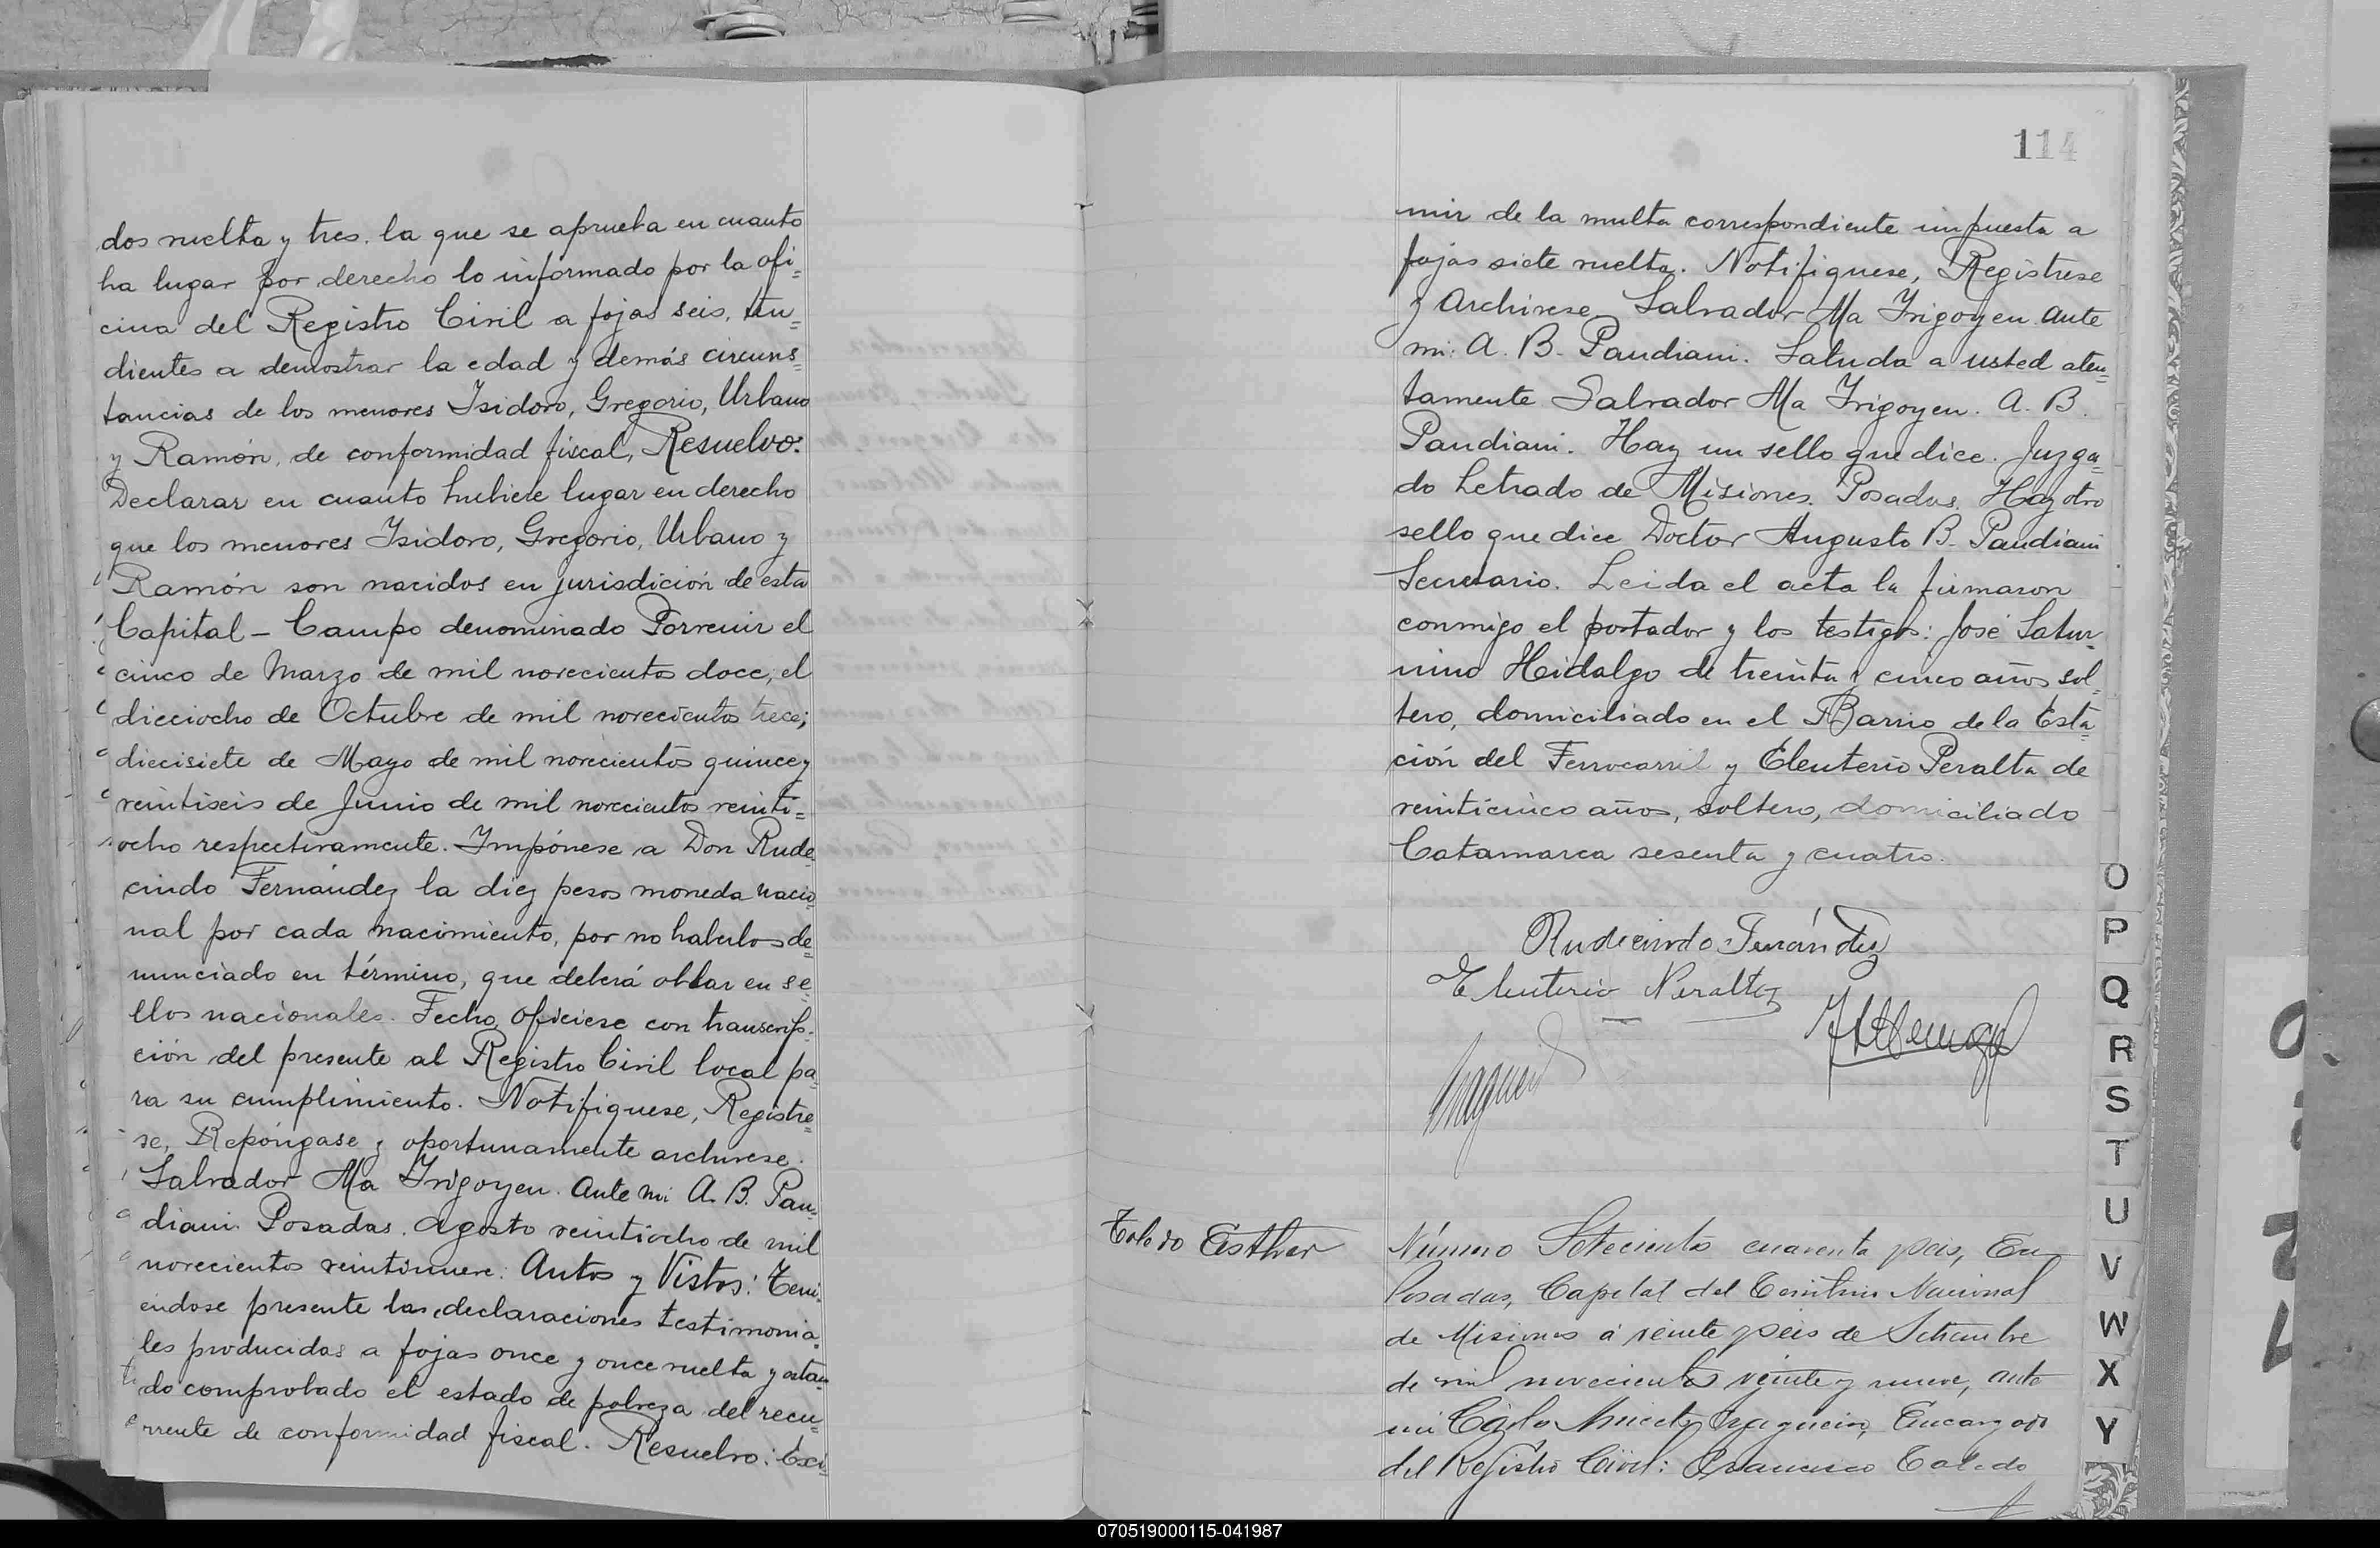 dos vuelta y tres. la que se aprueba en cuanto
ha lugar por derecho lo informado por la ofi=
cina del Registro Civil a fojas seis, ten=
dientes a demostrar la edad y demás circuns=
tancias de los menores Isidoro, Gregorio, Urbano
y Ramón, de conformidad fiscal, Resuelvo:
Declarar en cuanto hubiere lugar en derecho
que los menores Isidoro, Gregorio, Urbano y
Ramón son nacidos en jurisdición de esta
Capital - Campo denominado Porvenir el
cinco de Marzo de mil novecientos doce, el
dieciocho de Octubre de mil novecientos trece;
diecisiete de Mayo de mil novecientos quince y
veintiseis de Junio de mil novecientos veinti=
ocho respectivamente. Impónese a Don Rude=
cindo Fernández la diez pesos moneda nacio=
nal por cada nacimiento, por no haberlos de=
nunciado en término, que deberá oblar en se=
llos nacionales. Fecho, Oficiese con transcrip=
ción del presente al Registro Civil local pa=
ra su cumplimiento. Notifiquese, Registre=
se, Repóngase y oportunamente archivese.
Salvador Ma Irigoyen. Ante mi A. B. Pan=
diani. Posadas. Agosto veintiocho de mil
novecientos veintinueve: Autos y Vistos: Teni=
endose presente las declaraciones testimonia=
les producidas a fojas once y once vuelta y estan=
do comprobado el estado de pobreza del recu=
rrente de conformidad fiscal. Resuelvo: Exi=
114
mir de la multa correspondiente impuesta a
fojas siete vuelta. Notifiquese, Registrese
y Archivese. Salvador Ma Irigoyen. Ante
mi: A. B. Pandiani. Saluda a usted aten=
tamente Salvador Ma Irigoyen. A. B.
Pandiani. Hay un sello que dice. Juzga=
do Letrado de Misiones. Posadas. Hay otro
sello que dice Doctor Augusto B. Pandiani
Secretario. Leida el acta la firmaron
conmigo el portador y los testigos: José Satur=
nino Hidalgo de treinta y cinco años sol=
tero, domiciliado en el Barrio de la Esta=
ción del Ferrocarril y Eleuterio Peralta de
veinticinco años, soltero, domiciliado
Catamarca sesenta y cuatro.
Rudecindo Fernández
Eleuterio Peralta
Toledo Esther
Número Setecientos cuarenta y seis, En
Posadas, Capital del Territorio Nacional
de Misiones á veinte y seis de Setiembre
de mil novecientos veinte y nueve, ante
mi Carlos Encargado
del Registro Civil: Francisco Toledo
O
P
Q
R
S
T
U
V
W
X
Y
070519000115-041987